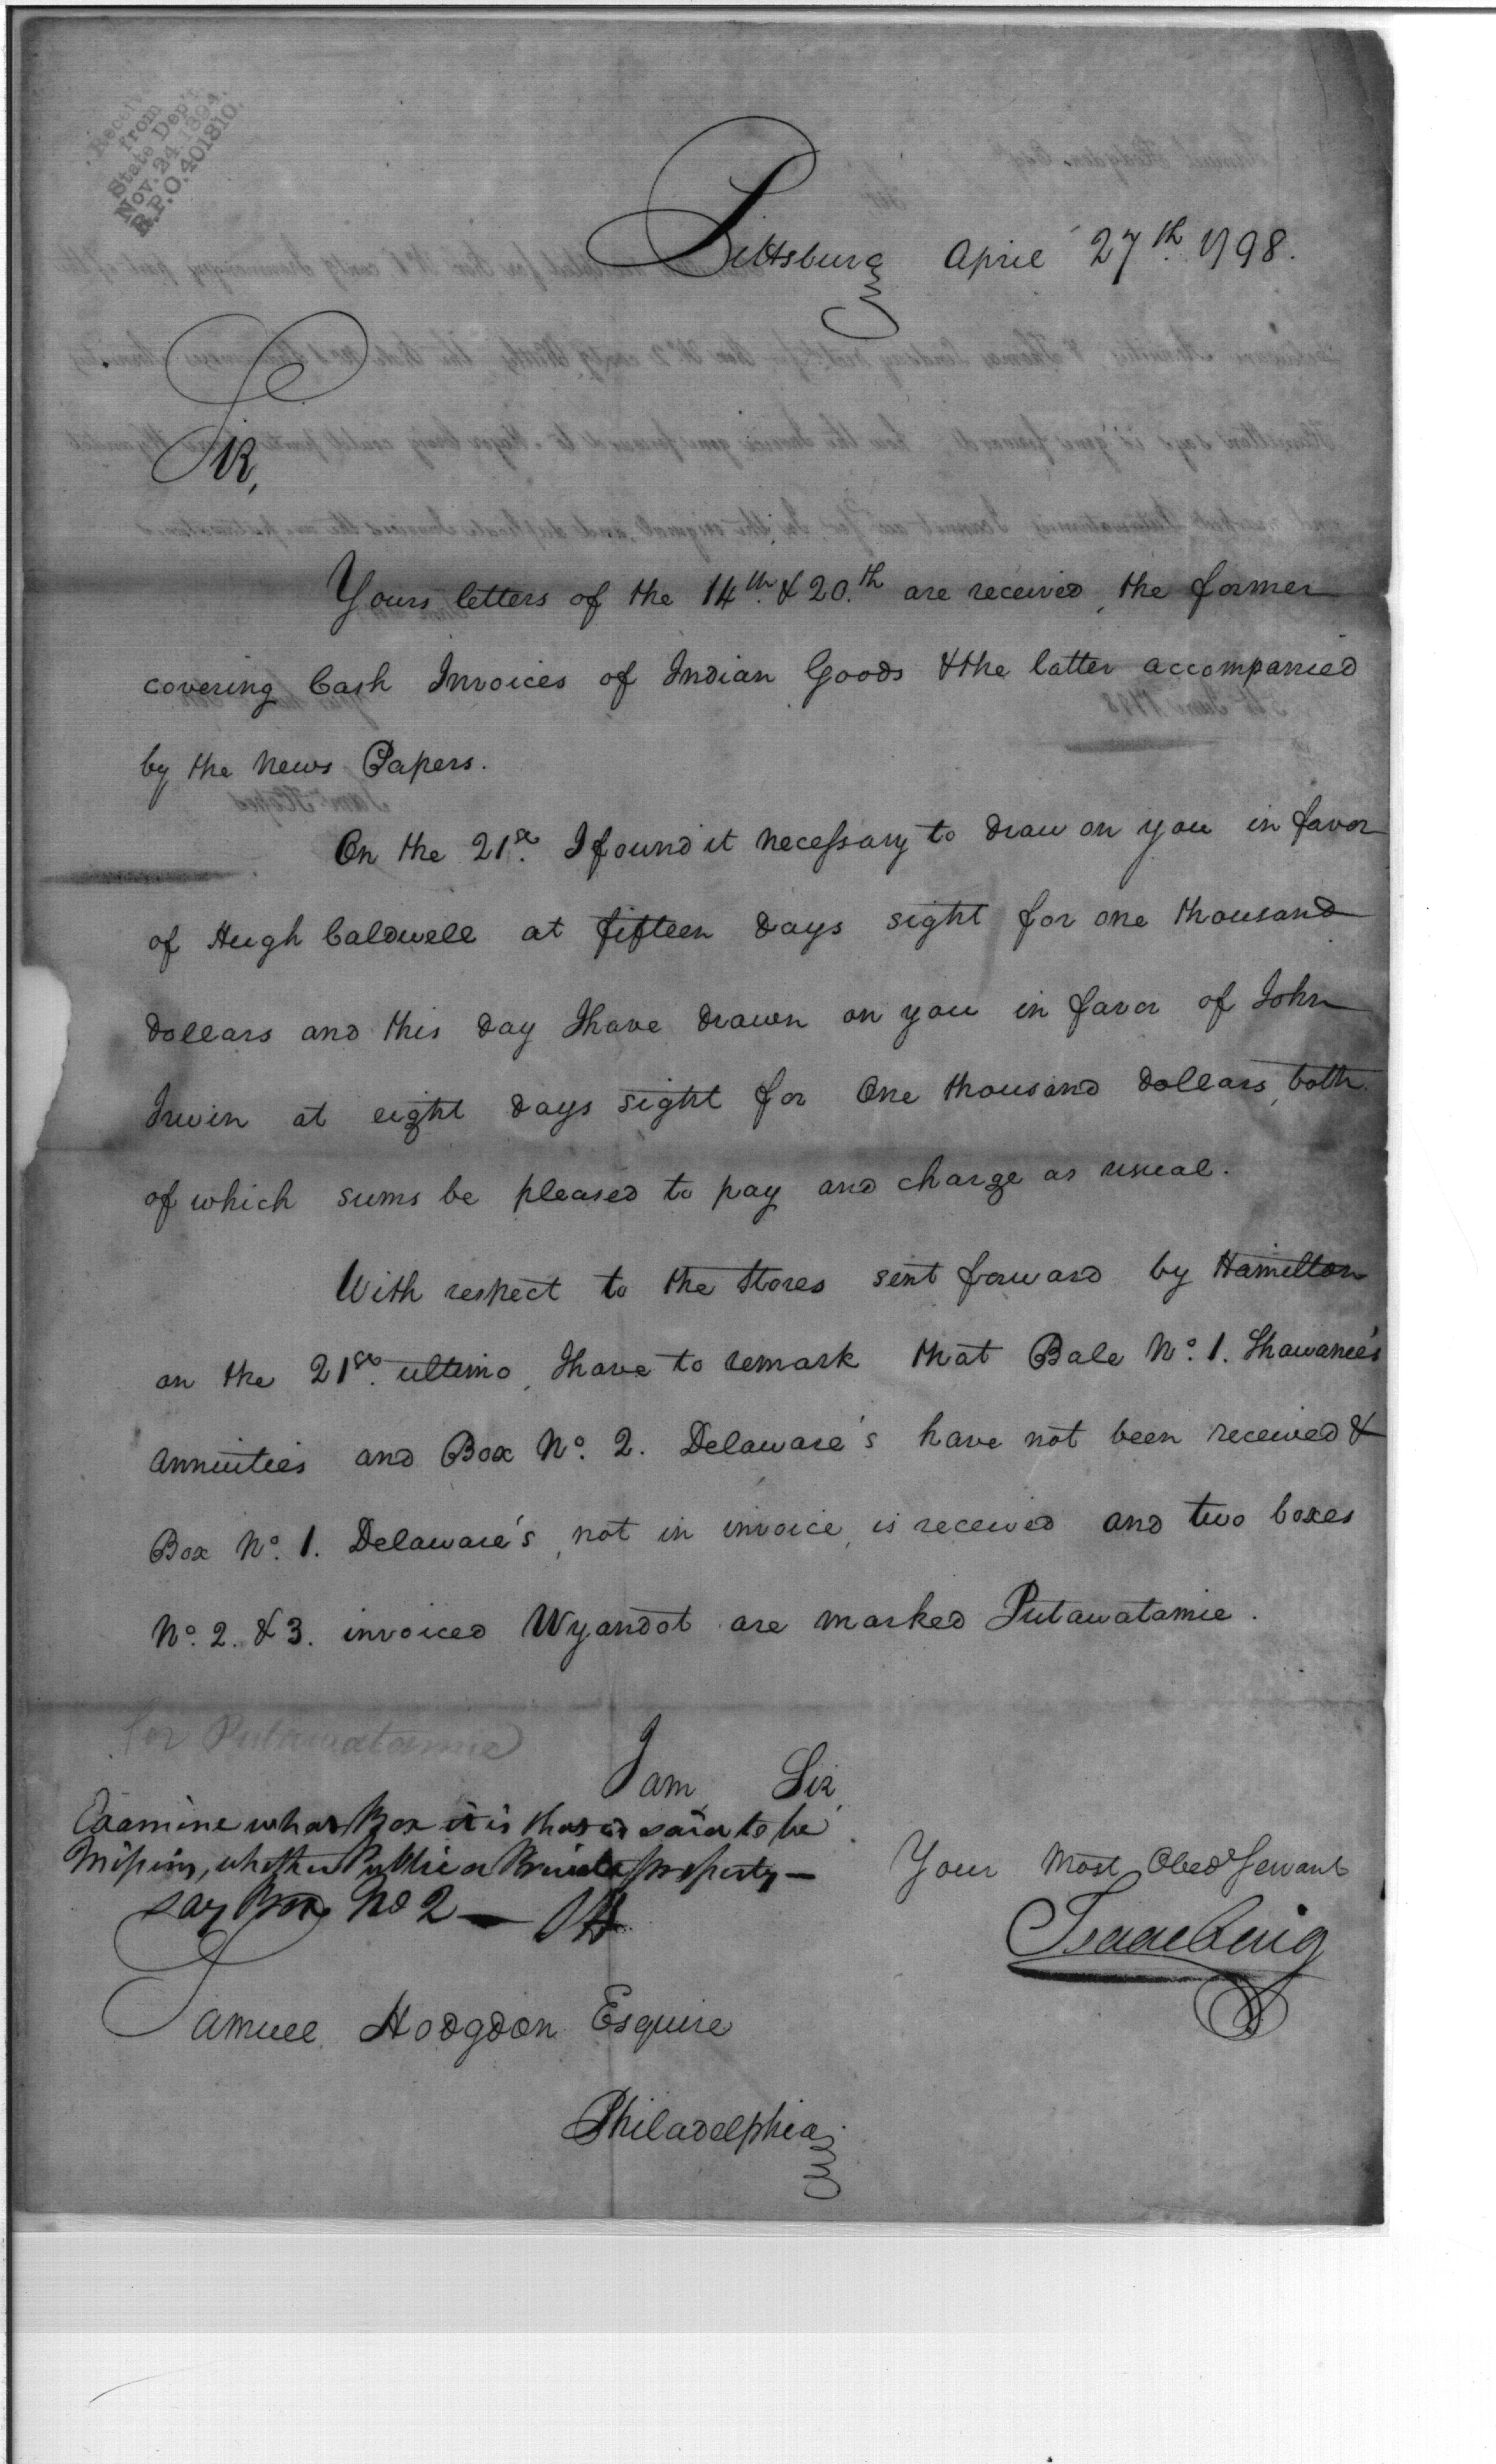 Received
from
State Dep't
Nov. 24. 1894.
R.P.O. 401810.
Pittsburg April 27th. 1798.
Sir,
Yours letters of the 14th. & 20.th are received, the former
covering Cash Invoices of Indian Goods & the latter accompanied
by the News Papers.
On the 21st. I found it necessary to draw on you in favor
of Hugh Caldwell at fifteen days sight for one thousand
dollars and this day I have drawn on you in favor of John
Irwin at eight days sight for One thousand dollars, both
of which sums be pleased to pay and charge as usual.
With respect to the Stores sent forward by Hamilton
on the 21st. ultimo, I have to remark that Bale No. 1. Shawanee's
annuities and Box No. 2. Delaware's have not been received &
Box No. 1. Delaware's, not in invoice, is received and two boxes
No. 2. & 3. invoiced Wyandot are marked Putawatamie.
for Putawatamie
I am, Sir,
Examine what Box it is that is said to be
missing, whether Public or Private property —
say Box No 2 — SH
Your Most Obed Servant
Isaac Craig
Samuel Hodgdon Esquire
Philadelphia